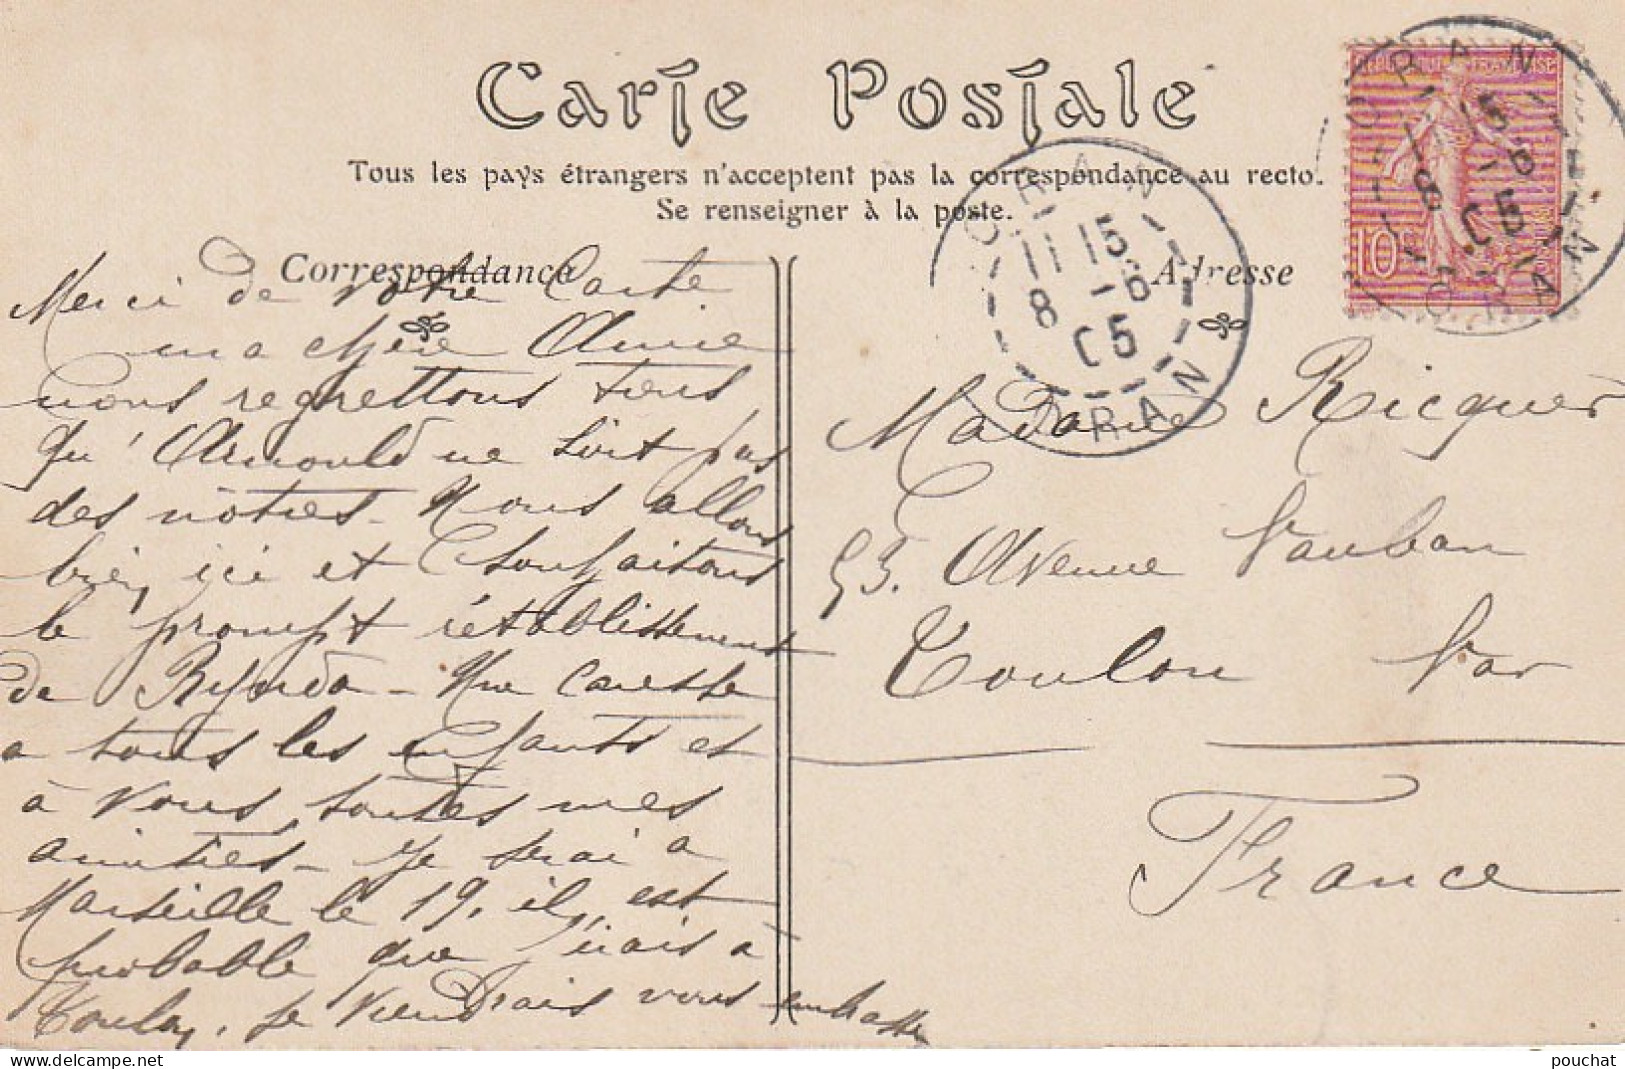 Carte Postale
Tous les pays étrangers n'acceptent pas la correspondance au recto.
Se renseigner à la poste.
Correspondance
Adresse
Merci de votre Carte
ma chère Amie
nous regrettons tous
qu'Arnould ne soit pas
des nôtres - Nous allons
bien ici et souhaitons
le prompt rétablissement
de - Une caresse
a tous les enfants et
à vous toutes mes
amitiés - Je serai a
Marseille le 19, il est
probable que j'irais à
Toulon, je viendrais vous embrasser
Madame Ricquer
53. Avenue Vauban
Toulon Var
France
REPUBLIQUE FRANÇAISE
10c
ORAN
15
8
05
ORAN
ORAN
11 15
8 -8
05
ORAN
pouchat